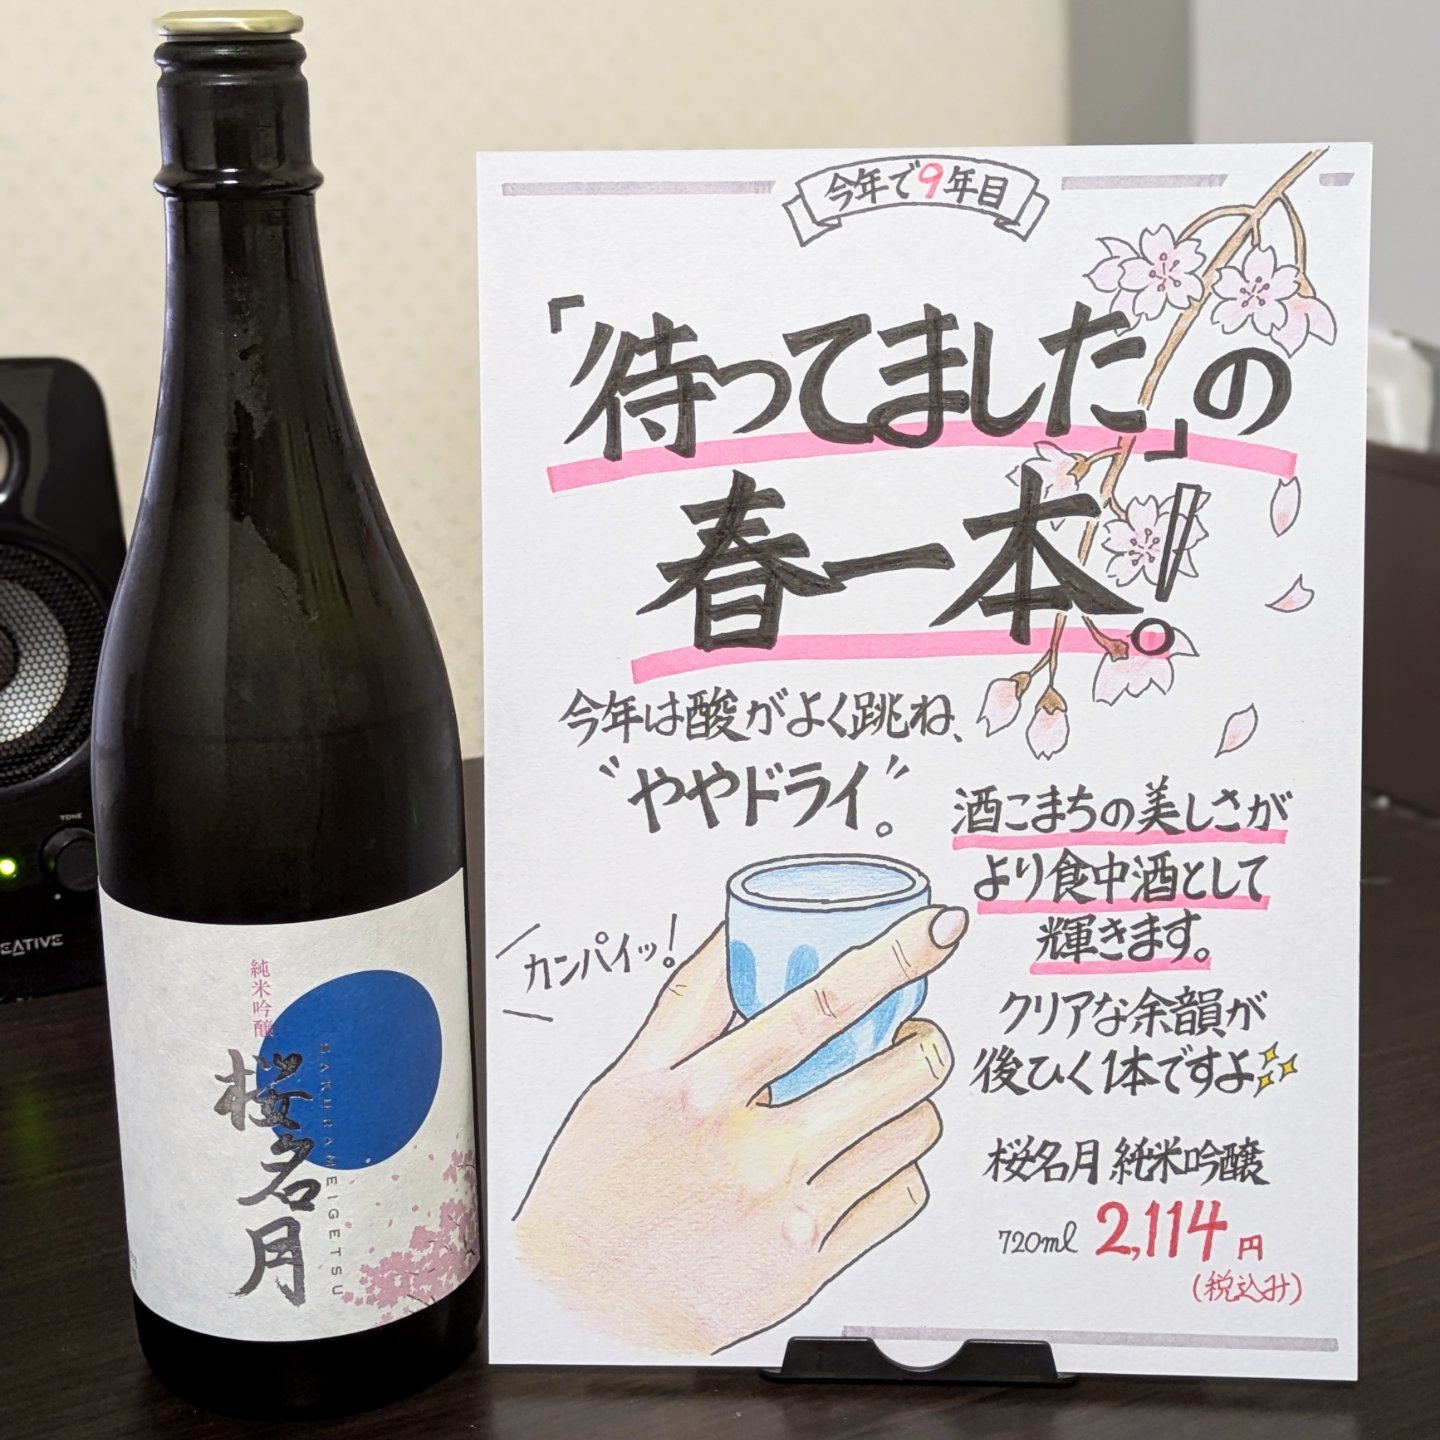 今年で9年目
「待ってました」の
春一本!
今年は酸がよく跳ね、
"ややドライ"。
酒こまちの美しさが
より食中酒として
輝きます。
カンパイッ!
クリアな余韻が
後ひく1本ですよ
桜名月 純米吟醸
720ml 2,114円
(税込み)
純米吟醸
桜名月
SAKURAMEIGETSU
TONE
EATIVE